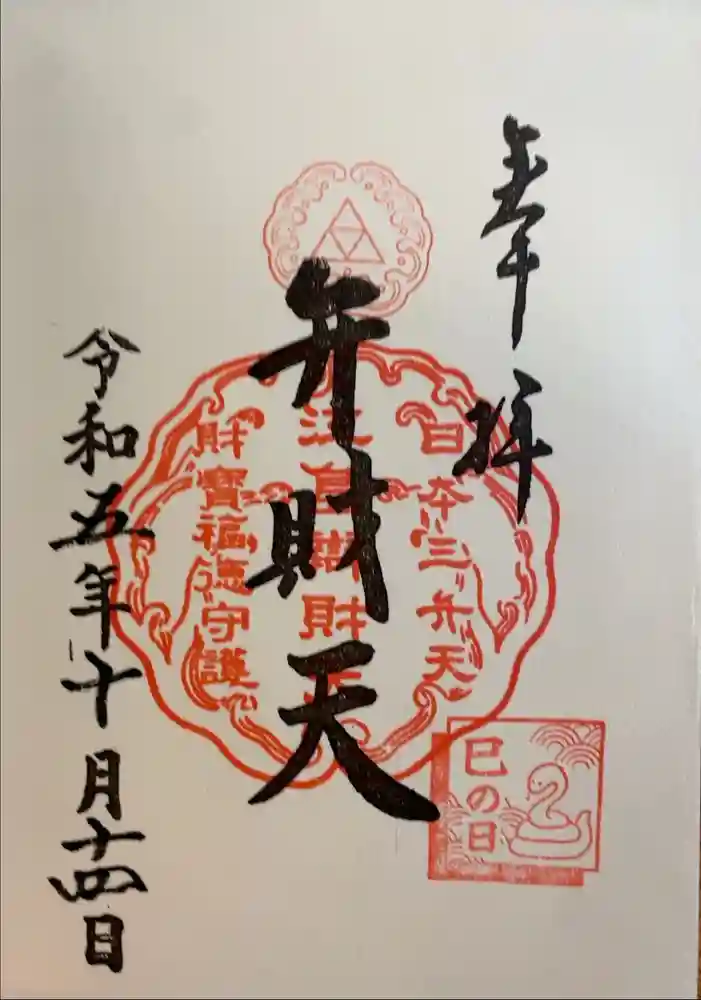 奉拝
日本三弁天
弁財天
財寶福徳守護
令和五年十月十四日
巳の日